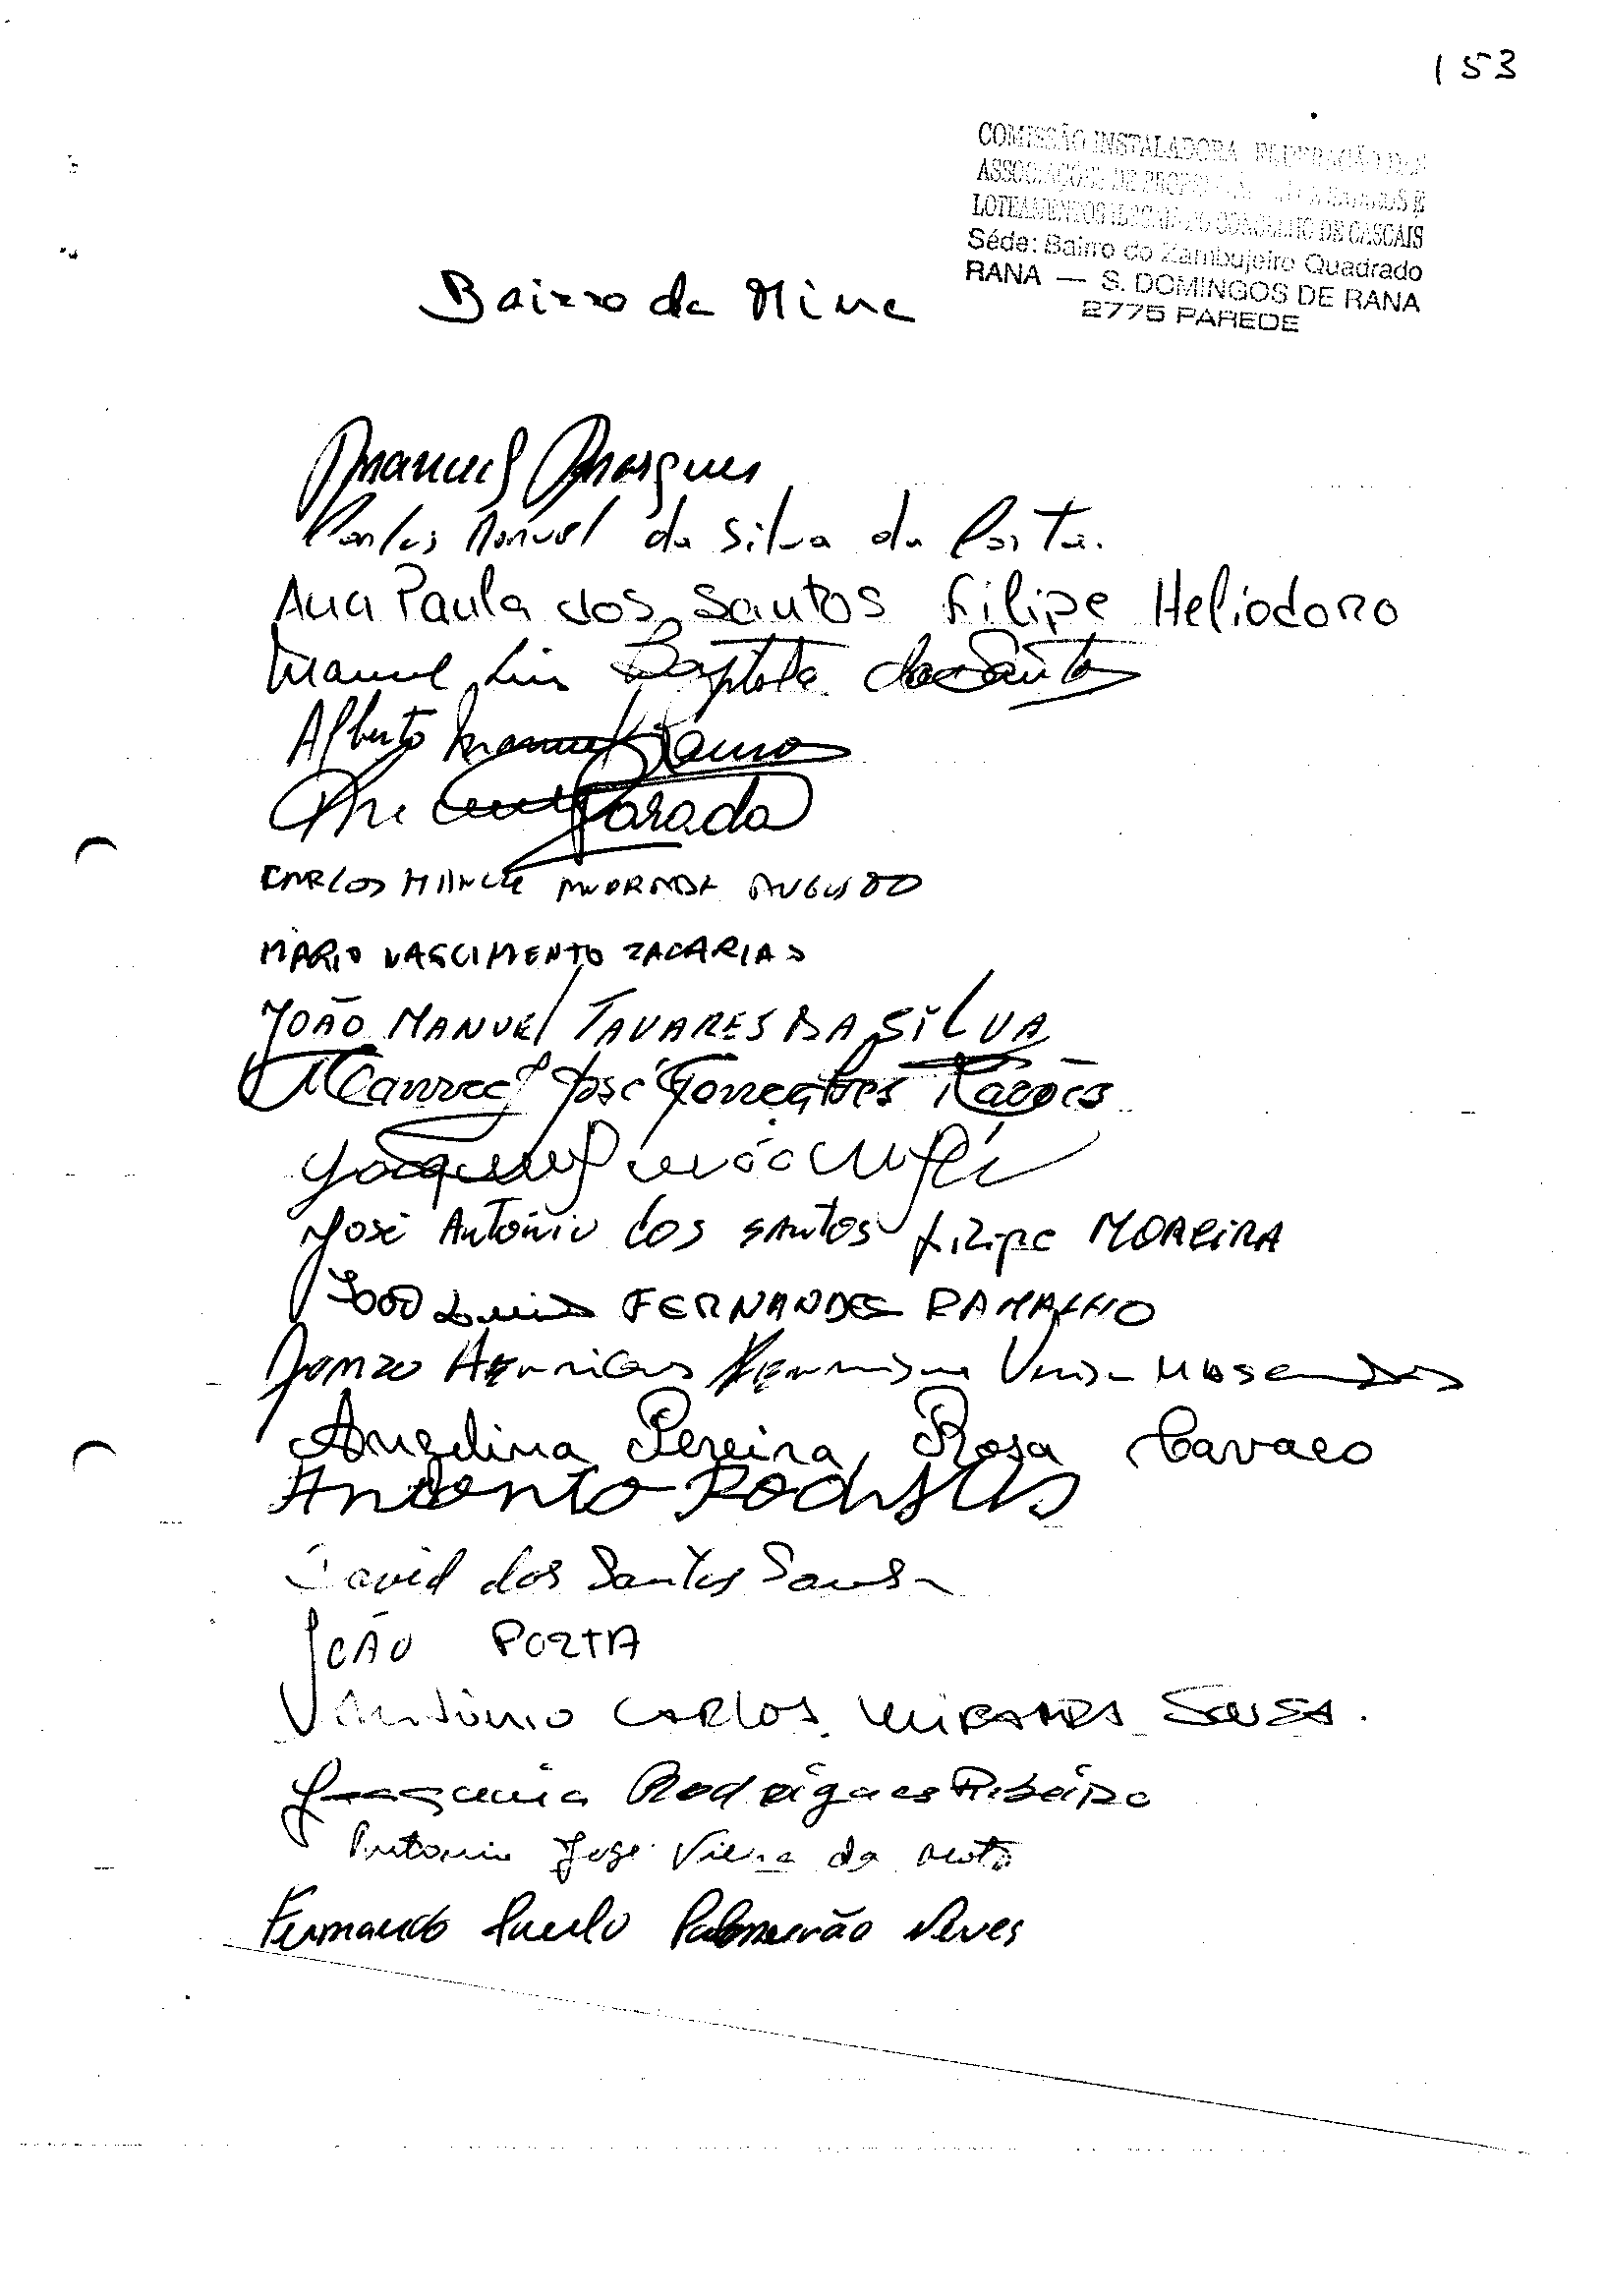 153
COMISSÃO INSTALADORA FEDERAÇÃO DAS
ASSOCIAÇÕES DE PROPRIETÁRIOS
LOTEAMENTOS ILEGAIS DO CONCELHO DE CASCAIS
Séde: Bairro do Zambujeiro Quadrado
RANA — S. DOMINGOS DE RANA
2775 PAREDE
Bairro da Mina
Manuel Marques
Carlos Manuel da Silva da Porta.
Ana Paula dos Santos Filipe Heliodoro
Manuel Luis Baptista dos Santos
Alberto Manuel Ramos
Parada
CARLOS MANUEL ANDRADE AUGUSTO
MÁRIO NASCIMENTO ZACARIAS
JOÃO MANUEL TAVARES DA SILVA
Manuel José Gonçalves
Joaquim
José António dos SANTOS Filipe MOREIRA
João Luis FERNANDES RAMALHO
Henriques
Angelina Pereira Rosa Cavaco
António Rodrigues
David dos Santos Sousa
JOÃO PORTA
António CARLOS MIRANDA SOUSA.
Rodrigues Ribeiro
Antonio José Vieira da Mota
Fernando Paulo Palmeirão Neves